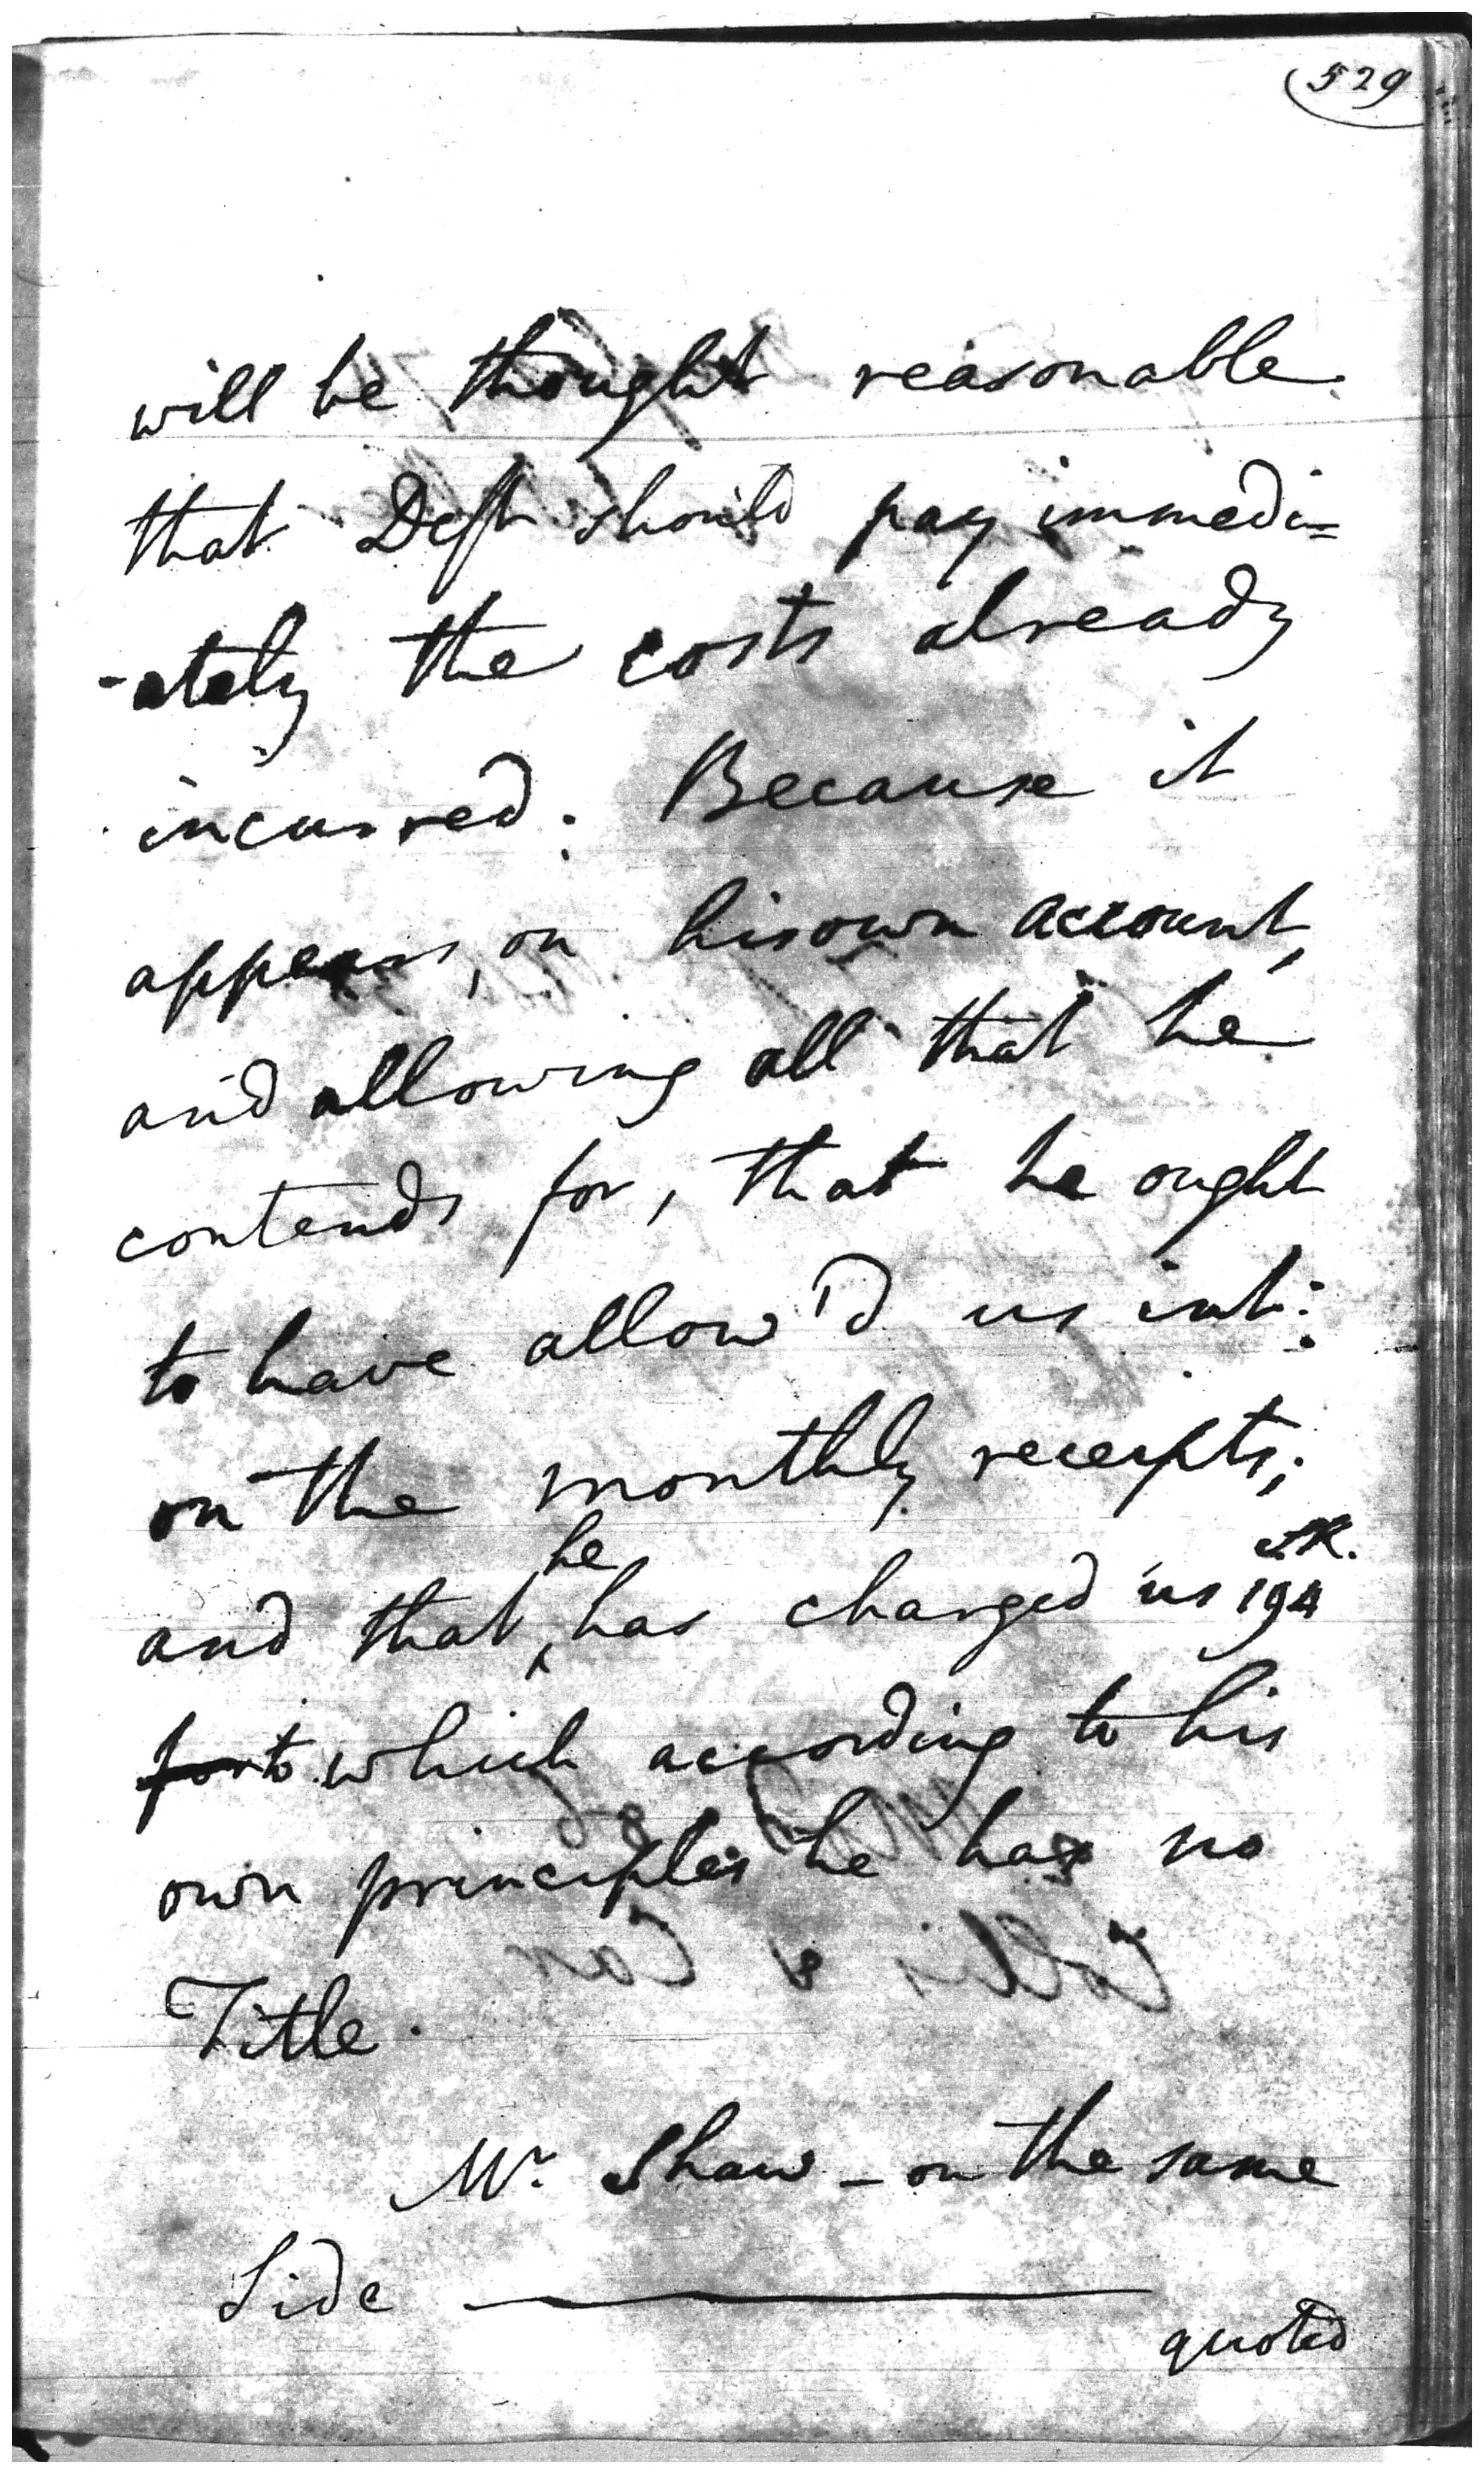 529
will be thought reasonable
that Deft should pay immedi=
-ately the costs already
incurred: Because it
appears, on his own account,
and allowing all that he
contends for, that he ought
to have allow'd us int:
on the monthly receipts;
and that he has charged us S.R. 194
for to which according to his
own principles he has no
Title.
Mr. Shaw - on the same
Side
quoted